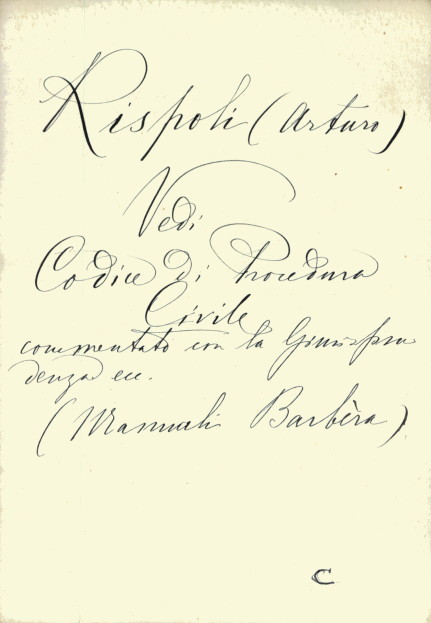 Rispoli (Arturo)
Vedi
Codice di Procedura
Civile
commentato con la Giurispru
denza ecc.
(Manuali Barbèra)
C